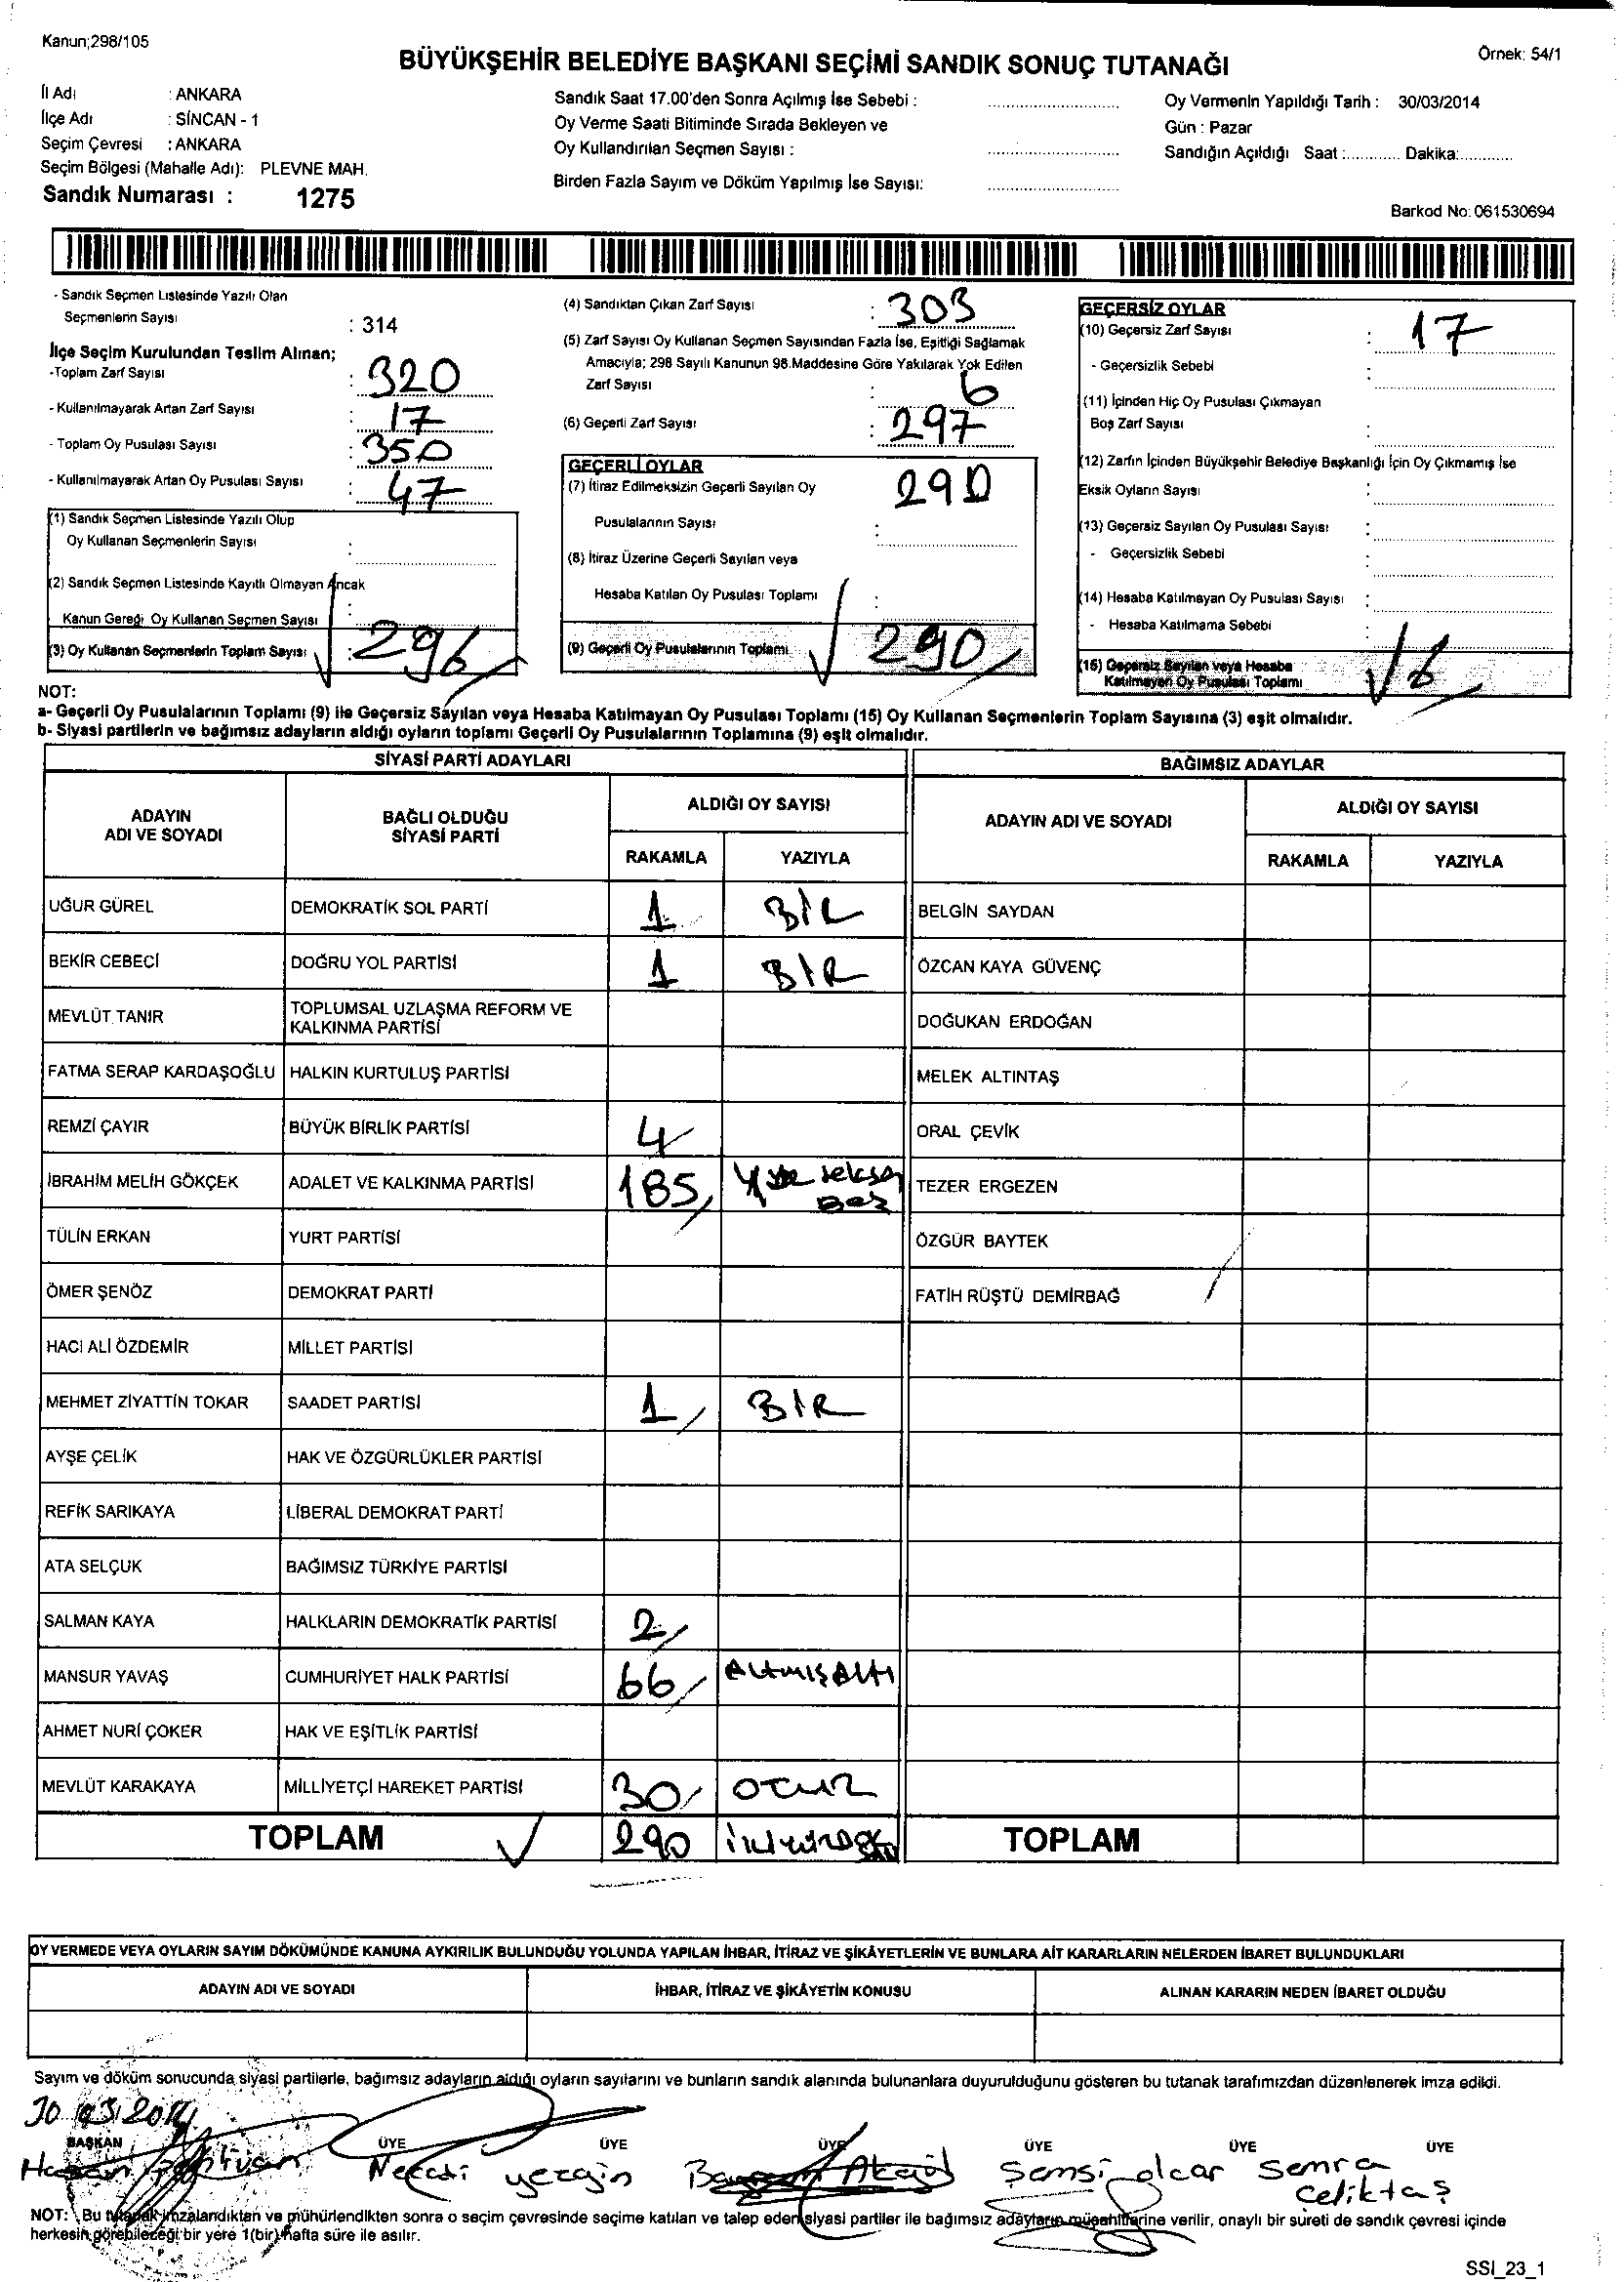 Kanun;298/105
Örnek: 54/1
BÜYÜKŞEHİR BELEDİYE BAŞKANI SEÇİMİ SANDIK SONUÇ TUTANAĞI
İl Adı : ANKARA
İlçe Adı : SİNCAN - 1
Seçim Çevresi : ANKARA
Seçim Bölgesi (Mahalle Adı): PLEVNE MAH.
Sandık Numarası : 1275
Sandık Saat 17.00'den Sonra Açılmış İse Sebebi :
Oy Verme Saati Bitiminde Sırada Bekleyen ve
Oy Kullandırılan Seçmen Sayısı :
Birden Fazla Sayım ve Döküm Yapılmış İse Sayısı:
Oy Vermenin Yapıldığı Tarih : 30/03/2014
Gün : Pazar
Sandığın Açıldığı Saat :............ Dakika:............
Barkod No: 061530694
- Sandık Seçmen Listesinde Yazılı Olan
Seçmenlerin Sayısı : 314
İlçe Seçim Kurulundan Teslim Alınan;
-Toplam Zarf Sayısı : 320
- Kullanılmayarak Artan Zarf Sayısı : 17
- Toplam Oy Pusulası Sayısı : 350
- Kullanılmayarak Artan Oy Pusulası Sayısı : 47
(1) Sandık Seçmen Listesinde Yazılı Olup
Oy Kullanan Seçmenlerin Sayısı :
(2) Sandık Seçmen Listesinde Kayıtlı Olmayan Ancak
Kanun Gereği Oy Kullanan Seçmen Sayısı :
(3) Oy Kullanan Seçmenlerin Toplam Sayısı : 296
(4) Sandıktan Çıkan Zarf Sayısı : 303
(5) Zarf Sayısı Oy Kullanan Seçmen Sayısından Fazla İse, Eşitliği Sağlamak
Amacıyla; 298 Sayılı Kanunun 98.Maddesine Göre Yakılarak Yok Edilen
Zarf Sayısı : 6
(6) Geçerli Zarf Sayısı : 297
GEÇERLİ OYLAR
(7) İtiraz Edilmeksizin Geçerli Sayılan Oy 290
Pusulalarının Sayısı :
(8) İtiraz Üzerine Geçerli Sayılan veya
Hesaba Katılan Oy Pusulası Toplamı :
(9) Geçerli Oy Pusulalarının Toplamı 290
GEÇERSİZ OYLAR
(10) Geçersiz Zarf Sayısı : 17
- Geçersizlik Sebebi :
(11) İçinden Hiç Oy Pusulası Çıkmayan
Boş Zarf Sayısı :
(12) Zarfın İçinden Büyükşehir Belediye Başkanlığı İçin Oy Çıkmamış İse
Eksik Oyların Sayısı :
(13) Geçersiz Sayılan Oy Pusulası Sayısı :
- Geçersizlik Sebebi :
(14) Hesaba Katılmayan Oy Pusulası Sayısı :
- Hesaba Katılmama Sebebi :
(15) Geçersiz Sayılan veya Hesaba
Katılmayan Oy Pusulası Toplamı 6
NOT:
a- Geçerli Oy Pusulalarının Toplamı (9) ile Geçersiz Sayılan veya Hesaba Katılmayan Oy Pusulası Toplamı (15) Oy Kullanan Seçmenlerin Toplam Sayısına (3) eşit olmalıdır.
b- Siyasi partilerin ve bağımsız adayların aldığı oyların toplamı Geçerli Oy Pusulalarının Toplamına (9) eşit olmalıdır.
SİYASİ PARTİ ADAYLARI BAĞIMSIZ ADAYLAR
ADAYIN ADI VE SOYADI BAĞLI OLDUĞU SİYASİ PARTİ ALDIĞI OY SAYISI ADAYIN ADI VE SOYADI ALDIĞI OY SAYISI
RAKAMLA YAZIYLA RAKAMLA YAZIYLA
UĞUR GÜREL DEMOKRATİK SOL PARTİ 1 BİR BELGİN SAYDAN
BEKİR CEBECİ DOĞRU YOL PARTİSİ 1 BIR ÖZCAN KAYA GÜVENÇ
MEVLÜT TANIR TOPLUMSAL UZLAŞMA REFORM VE KALKINMA PARTİSİ DOĞUKAN ERDOĞAN
FATMA SERAP KARDAŞOĞLU HALKIN KURTULUŞ PARTİSİ MELEK ALTINTAŞ
REMZİ ÇAYIR BÜYÜK BİRLİK PARTİSİ 4 ORAL ÇEVİK
İBRAHİM MELİH GÖKÇEK ADALET VE KALKINMA PARTİSİ 185 Yüz seksen Beş TEZER ERGEZEN
TÜLİN ERKAN YURT PARTİSİ ÖZGÜR BAYTEK
ÖMER ŞENÖZ DEMOKRAT PARTİ FATİH RÜŞTÜ DEMİRBAĞ
HACI ALİ ÖZDEMİR MİLLET PARTİSİ
MEHMET ZİYATTİN TOKAR SAADET PARTİSİ 1 BIR
AYŞE ÇELİK HAK VE ÖZGÜRLÜKLER PARTİSİ
REFİK SARIKAYA LİBERAL DEMOKRAT PARTİ
ATA SELÇUK BAĞIMSIZ TÜRKİYE PARTİSİ
SALMAN KAYA HALKLARIN DEMOKRATİK PARTİSİ 2
MANSUR YAVAŞ CUMHURİYET HALK PARTİSİ 66 ALtmışAltı
AHMET NURİ ÇOKER HAK VE EŞİTLİK PARTİSİ
MEVLÜT KARAKAYA MİLLİYETÇİ HAREKET PARTİSİ 30 OTUZ
TOPLAM 290 TOPLAM
OY VERMEDE VEYA OYLARIN SAYIM DÖKÜMÜNDE KANUNA AYKIRILIK BULUNDUĞU YOLUNDA YAPILAN İHBAR, İTİRAZ VE ŞİKÂYETLERİN VE BUNLARA AİT KARARLARIN NELERDEN İBARET BULUNDUKLARI
ADAYIN ADI VE SOYADI İHBAR, İTİRAZ VE ŞİKÂYETİN KONUSU ALINAN KARARIN NEDEN İBARET OLDUĞU
Sayım ve döküm sonucunda siyasi partilerle, bağımsız adayların aldığı oyların sayılarını ve bunların sandık alanında bulunanlara duyurulduğunu gösteren bu tutanak tarafımızdan düzenlenerek imza edildi.
30.03.2014
BAŞKAN ÜYE ÜYE ÜYE ÜYE ÜYE ÜYE
Hasan Necati yezgin Akgül Şemsi olcar Semra
Çeliktaş
NOT: Bu tutanak imzalandıktan ve mühürlendikten sonra o seçim çevresinde seçime katılan ve talep eden siyasi partiler ile bağımsız adayların müşahitlerine verilir, onaylı bir sureti de sandık çevresi içinde
herkesin görebileceği bir yere 1(bir) hafta süre ile asılır.
SSI_23_1